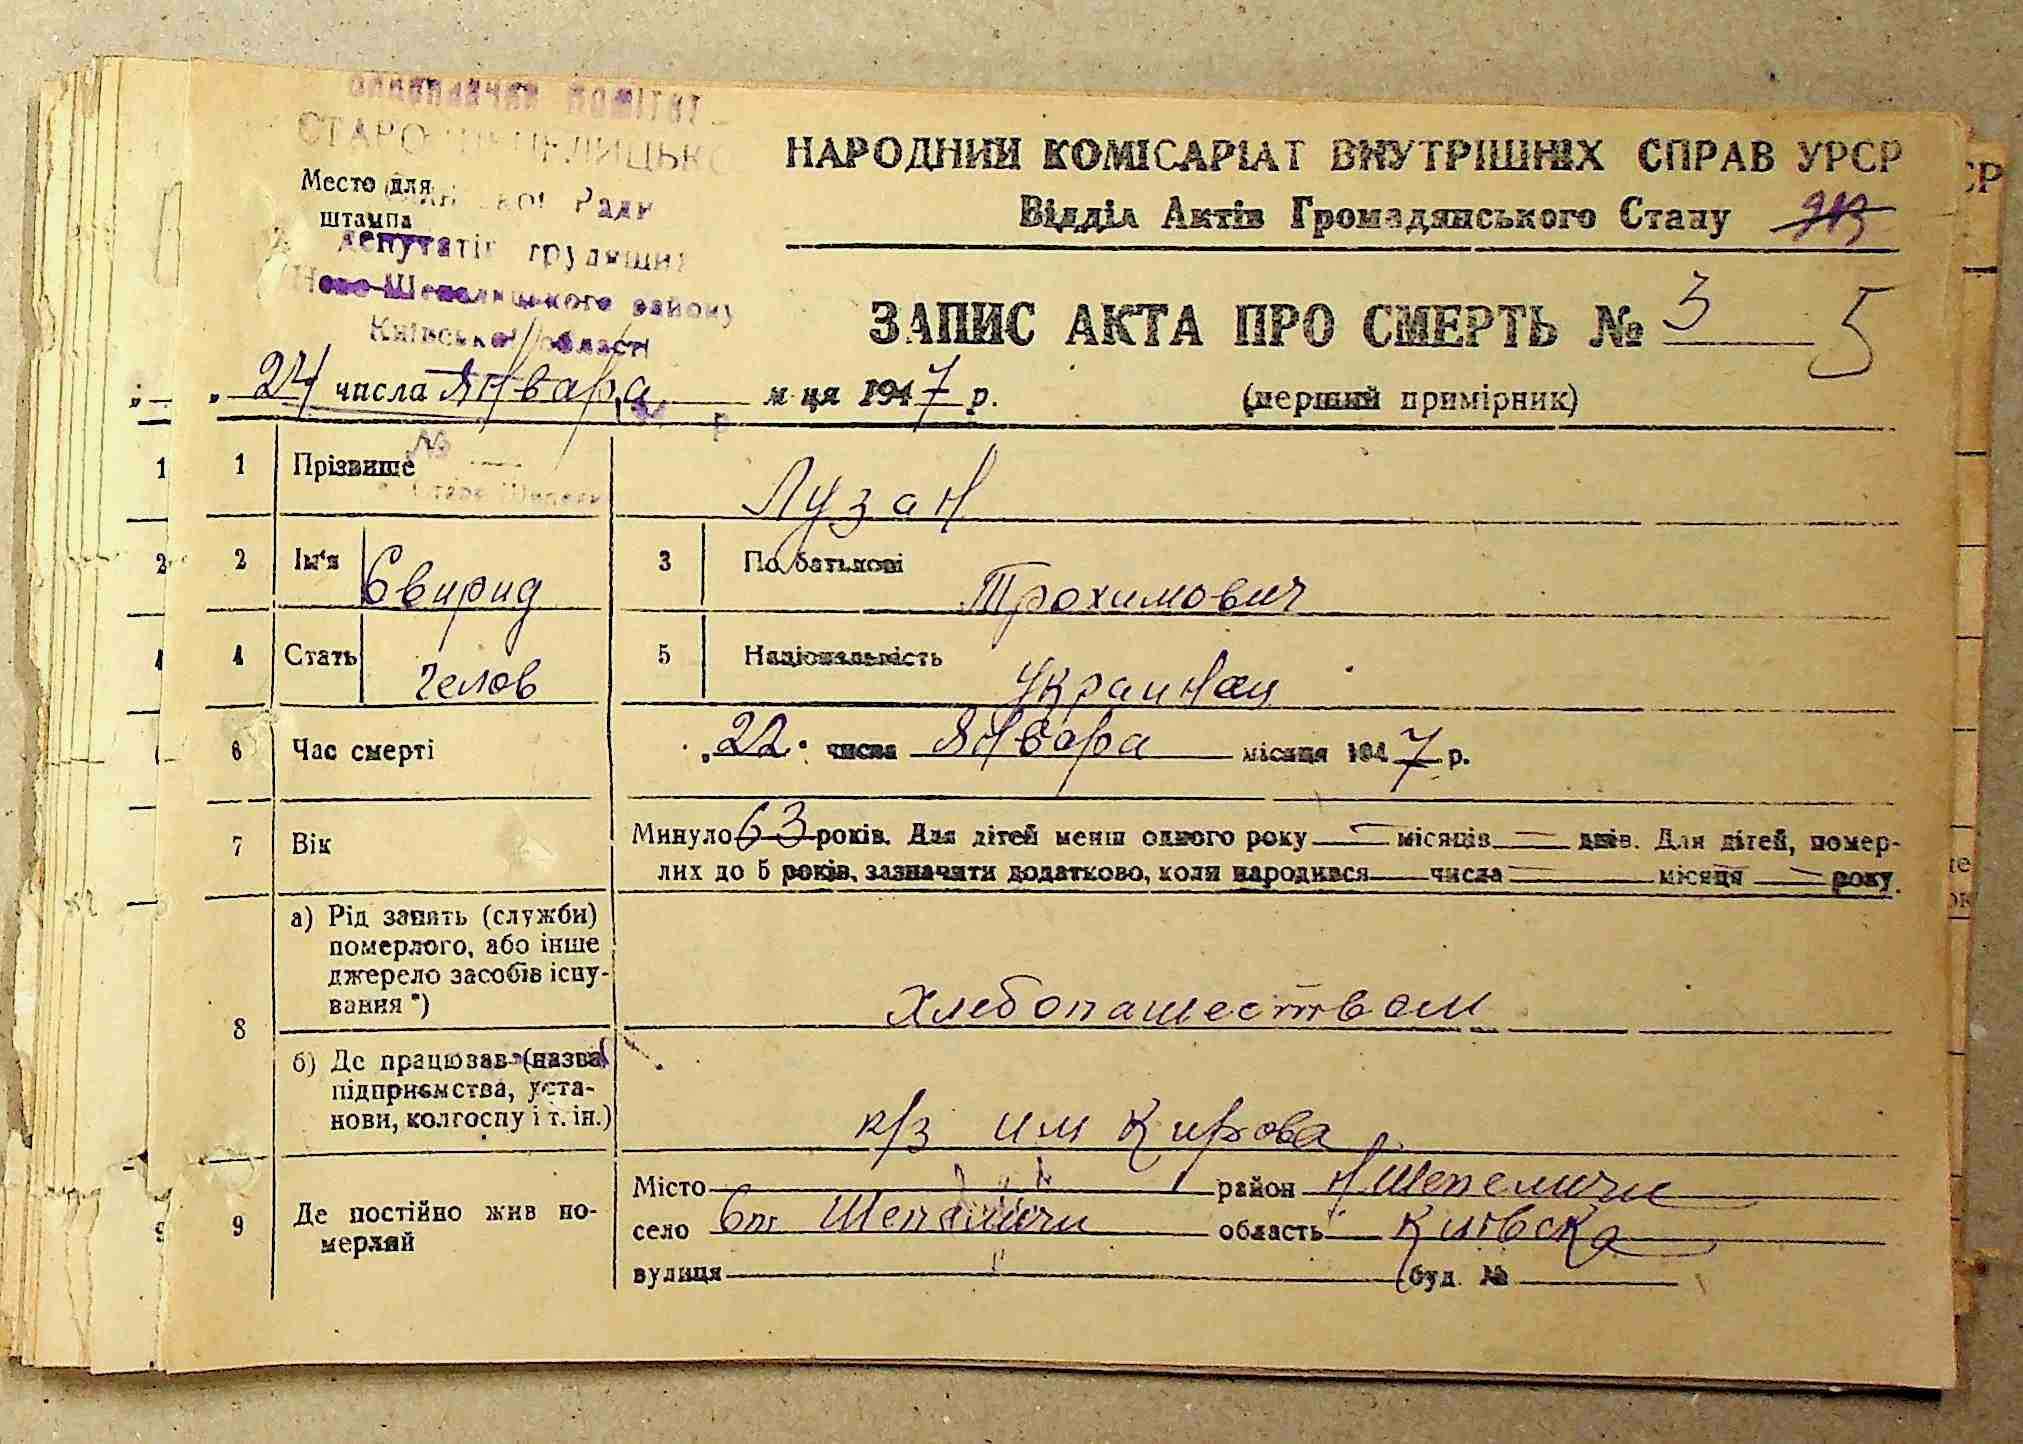 комітет
СТАРО-ШЕПЕЛИЦЬКО
Ради
депутатів трудящих
Ново-Шепелицького району
Київської області
Место для
штампа
НАРОДНИЙ КОМІСАРІАТ ВНУТРІШНІХ СПРАВ УРСР
Відділ Актів Громадянського Стану
ЗАПИС АКТА ПРО СМЕРТЬ № 3 5
„ 24 числа Января м-ця 1947 р.
(перший примірник)
1 Прізвише Лузан
2 Ім'я Свирид 3 По батькові Трохимович
4 Стать Челов 5 Національність Украинец
6 Час смерті „22" числа Января місяця 1947 р.
7 Вік Минуло 63 років. Для дітей менш одного року — місяців — днів. Для дітей, помер-
лих до 5 років, зазначити додатково, коли народився — числа — місяця — року.
8 а) Рід занять (служби)
померлого, або інше
джерело засобів існу-
вання *) Хлебопашеством
б) Де працював (назва
підприємства, уста-
нови, колгоспу і т. ін.) к/з им Кирова
9 Де постійно жив по-
мерлий
Місто район Н Шепеличи
село Ст Шепеличи область Киевска
вулиця буд. №